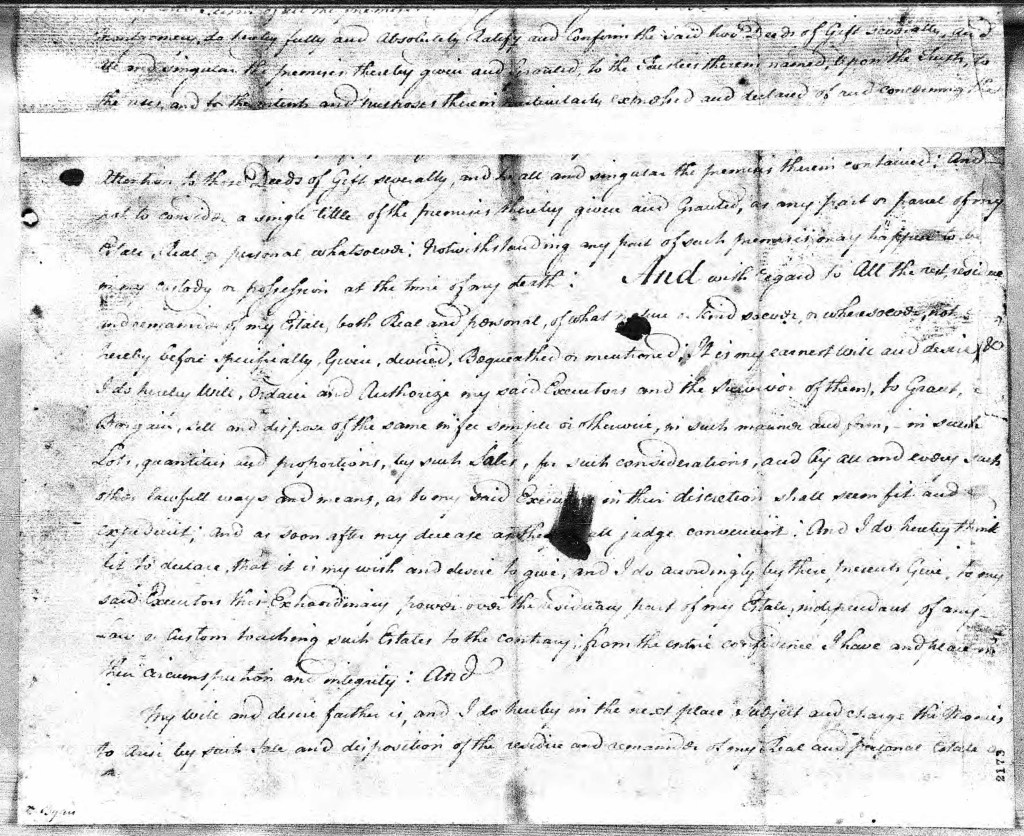 do hereby fully and Absolutely Ratify and Confirm the said two Deeds of Gift severally, and
all and singular the premises thereby given and Granted, to the Trustees therein named, Upon the Trusts, to
the uses, and to the intents and purposes therein particularly expressed and declared of and concerning the
Attention to those Deeds of Gift severally, and to all and singular the premises therein contained: And
not to consider a single tittle of the premises thereby given and Granted, as any part or parcel of my
Estate Real or personal whatsoever: Notwithstanding any part of such premises may happen to be
in my custody or possession at the time of my death: And with regard to All the rest, residue
and remainder of my Estate, both Real and personal, of what nature or kind soever, or wheresoever, not
hereby before specifically, Given, devised, Bequeathed or mentioned; It is my earnest will and desire, &
I do hereby Will, Ordain and Authorize my said Executors and the Survivor of them, to Grant,
Bargain, sell and dispose of the same in fee simple or otherwise, in such manner and form, in such
Lots, quantities and proportions, by such Sales, for such considerations, and by all and every such
other lawfull ways and means, as to my said Executors in their discretion shall seem fit and
expedient; and as soon after my decease as they shall judge convenient: And I do hereby think
fit to declare, that it is my wish and desire to give, and I do accordingly by these presents Give, to my
said Executors this Extraordinary power over the residuary part of my Estate, independant of any
Law or Custom touching such Estates to the contrary; from the entire confidence I have and place in
their circumspection and integrity: And
My will and desire farther is, and I do hereby in the next place Subject and charge the Monies
to arise by such Sale and disposition of the residue and remainder of my Real and personal Estate
2173